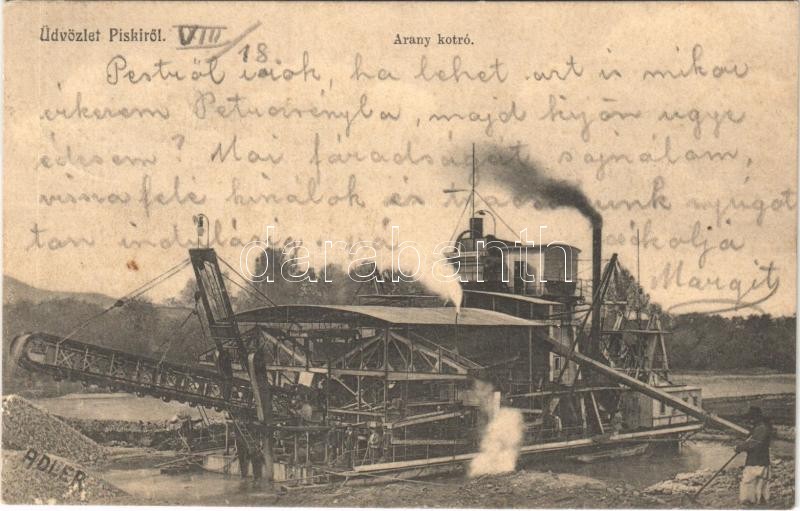 Üdvözlet Piskiről. VIII/18
Arany kotró.
Pestről irok, ha lehet art is mikor
érkerem Petrozsénybe, majd kijön ugye
édesem? Mai fáradságat sajnálom,
vissza felé hinálok és nyugot
tan
csókolja
Margit
darabanth
ADLER